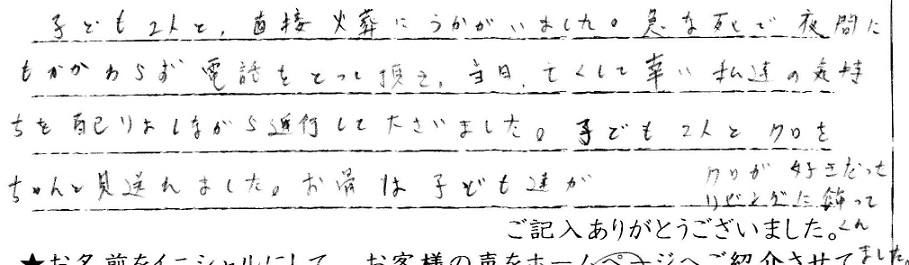 子ども2人と、直接火葬にうかがいました。急な死で夜間に
もかかわらず電話をとって頂き、当日、亡くして辛い私達の気持
ちを配りょしながら進行して下さいました。子ども2人とクロを
ちゃんと見送れました。お骨は子ども達が
クロが好きだった
リビングに飾って
くれ
ました。
ご記入ありがとうございました。
★お名前をイニシャルにして、お客様の声をホームページへご紹介させて